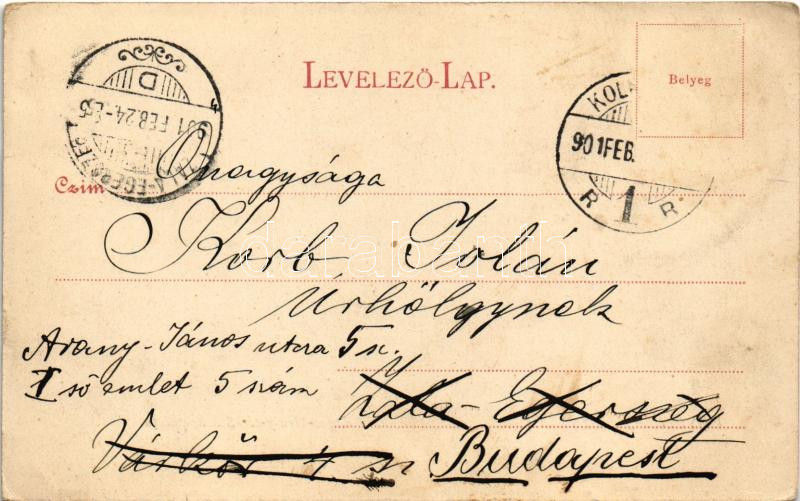 LEVELEZŐ-LAP.
Belyeg
D
901 FEB 24
ZALA-EGERSZEG
KOL
901 FEB.
R 1 R
Czim
Onagysága
Korb Jolán
Úrhölgynek
Arany-János utcza 5 sz.
I ső emlet 5 szám
Zala-Egerszeg
Várkör 4. sz. Budapest
darabanth